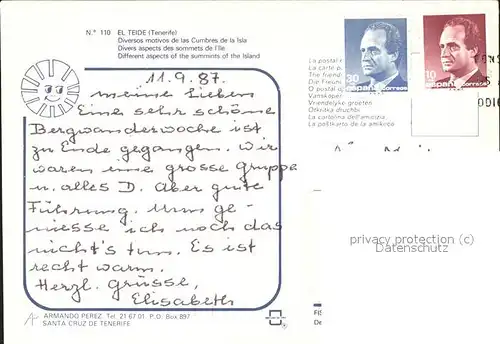 N.° 110 EL TEIDE (Tenerife)
Diversos motivos de las Cumbres de la Isla
Divers aspects des sommets de l'Ile
Different aspects of the summints of the Island
11.9.87.
meine Lieben
Eine sehr schöne
Bergwanderwoche ist
zu Ende gegangen. Wir
waren eine grosse Gruppe
u. alles D. Aber gute
Führung. Nun ge-
niesse ich noch das
nicht's tun. Es ist
recht warm.
Herzl. Grüsse,
Elisabeth
ARMANDO PEREZ Tel. 21 67 01. P.O. Box 897
SANTA CRUZ DE TENERIFE
La postal
La carte p
The friend
Die Freun
O postal
Vanskaper
Vriendelyke groeten
Otkritka druchbi
La cartolina dell'amicizia
La poŝtkarto de la amikece
30
España correos
10
España correos
privacy protection (c)
Datenschutz
FIS
De